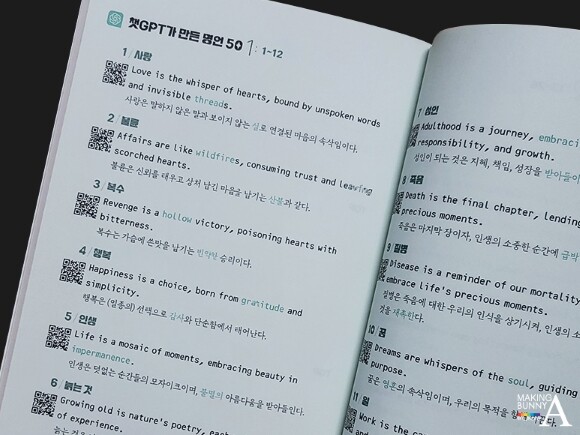 챗GPT가 만든 명언 50 1: 1~12
1 / 사랑
Love is the whisper of hearts, bound by unspoken words
and invisible threads.
사랑은 말하지 않은 말과 보이지 않는 실로 연결된 마음의 속삭임이다.
2 / 불륜
Affairs are like wildfires, consuming trust and leaving
scorched hearts.
불륜은 신뢰를 태우고 상처 남긴 마음을 남기는 산불과 같다.
3 / 복수
Revenge is a hollow victory, poisoning hearts with
bitterness.
복수는 가슴에 쓴맛을 남기는 빈약한 승리이다.
4 / 행복
Happiness is a choice, born from gratitude and
simplicity.
행복은 (일종의) 선택으로 감사와 단순함에서 태어난다.
5 / 인생
Life is a mosaic of moments, embracing beauty in
impermanence.
인생은 덧없는 순간들의 모자이크이며, 불멸의 아름다움을 받아들인다.
6 / 늙는 것
Growing old is nature's poetry, each
of experience.
늙는 것은
7 / 성인
Adulthood is a journey, embracing
responsibility, and growth.
성인이 되는 것은 지혜, 책임, 성장을 받아들이
8 / 죽음
Death is the final chapter, lending
precious moments.
죽음은 마지막 장이자, 인생의 소중한 순간에 급박
9 / 질병
Disease is a reminder of our mortality
embrace life's precious moments.
질병은 죽음에 대한 우리의 인식을 상기시켜, 인생의 소
것을 재촉한다.
10 / 꿈
Dreams are whispers of the soul, guiding
purpose.
꿈은 영혼의 속삭임이며, 우리의 목적을 향
11 / 일
Work is the ca
MAKING
BUNNY
A